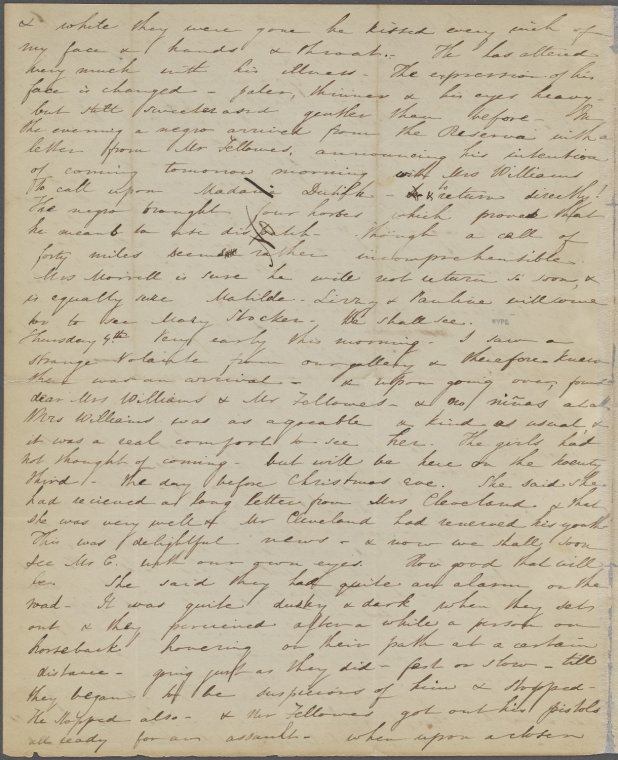 & while they were gone he kissed every inch of
my face & hands & throat. - He has altered
very much with his illness - The expression of his
face is changed - paler, thinner & his eyes heavy -
but still sweeter and gentler than before - In
the evening a negro arrived from the Reserva with a
letter from Mr Fellowes, announcing his intention
of coming tomorrow morning with Mrs Williams
to call upon Madame - & to return directly!
The negro brought four horses which proved that
he meant to use dispatch - though a call of
forty miles seemed rather incomprehensible.
Mrs Morrell is sure he will not return so soon, &
is equally sure Matilda - Lizzy & Pauline will come
too to see Mary Stocker - We shall see.
NYPL
Thursday 4th. Very early this morning - I saw a
strange Volante from our gallery & therefore knew
there was an arrival - & upon going over, found
dear Mrs Williams & Mr Fellowes - & no niñas at all
Mrs Williams was as agreeable & kind as usual, &
it was a real comfort to see her. The girls had
not thought of coming - but will be here on the twenty
third - the day before Christmas eve. She said she
had recieved a long letter from Mrs Cleveland & that
she was very well & Mr Cleveland had renewed his youth
This was delightful news - & now we shall soon
see Mr C. with our own eyes. How good that will
be. She said they had quite an alarm on the
road - It was quite dusky & dark when they set
out & they perceived after a while a person on
horseback hovering on their path at a certain
distance - going just as they did - fast or slow - till
they began to be suspicious of him & stopped -
He stopped also - & Mr Fellowes got out his pistols
all ready for an assault - when upon a closer